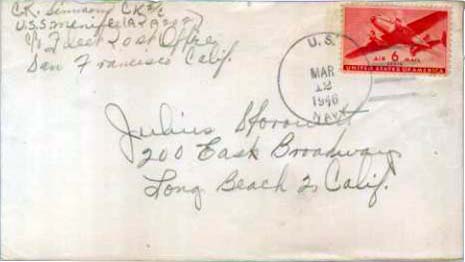 C.K. CK 3/c
U.S.S. Menifee
c/o Fleet Post Office
San Francisco Calif.
U.S.
MAR
12
1946
NAVY
AIR 6 MAIL
CENTS
UNITED STATES OF AMERICA
Julius
200 East Broadway
Long Beach 2, Calif.